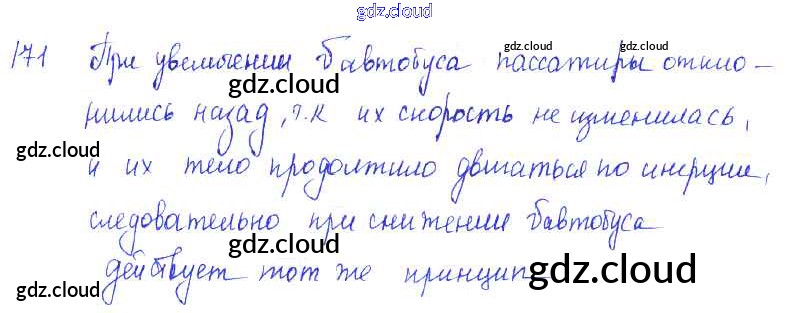 gdz.cloud
171 При увеличении υавтобуса пассатиры откло-
gdz.cloud gdz.cloud
gdz.cloud
нились назад, т.к их скорость не изменилась,
gdz.cloud gdz.cloud
и их тело продолтило двигаться по инерции,
следовательно при снижении υавтобуса
gdz.cloud
действует тот же принцип
gdz.cloud gdz.cloud